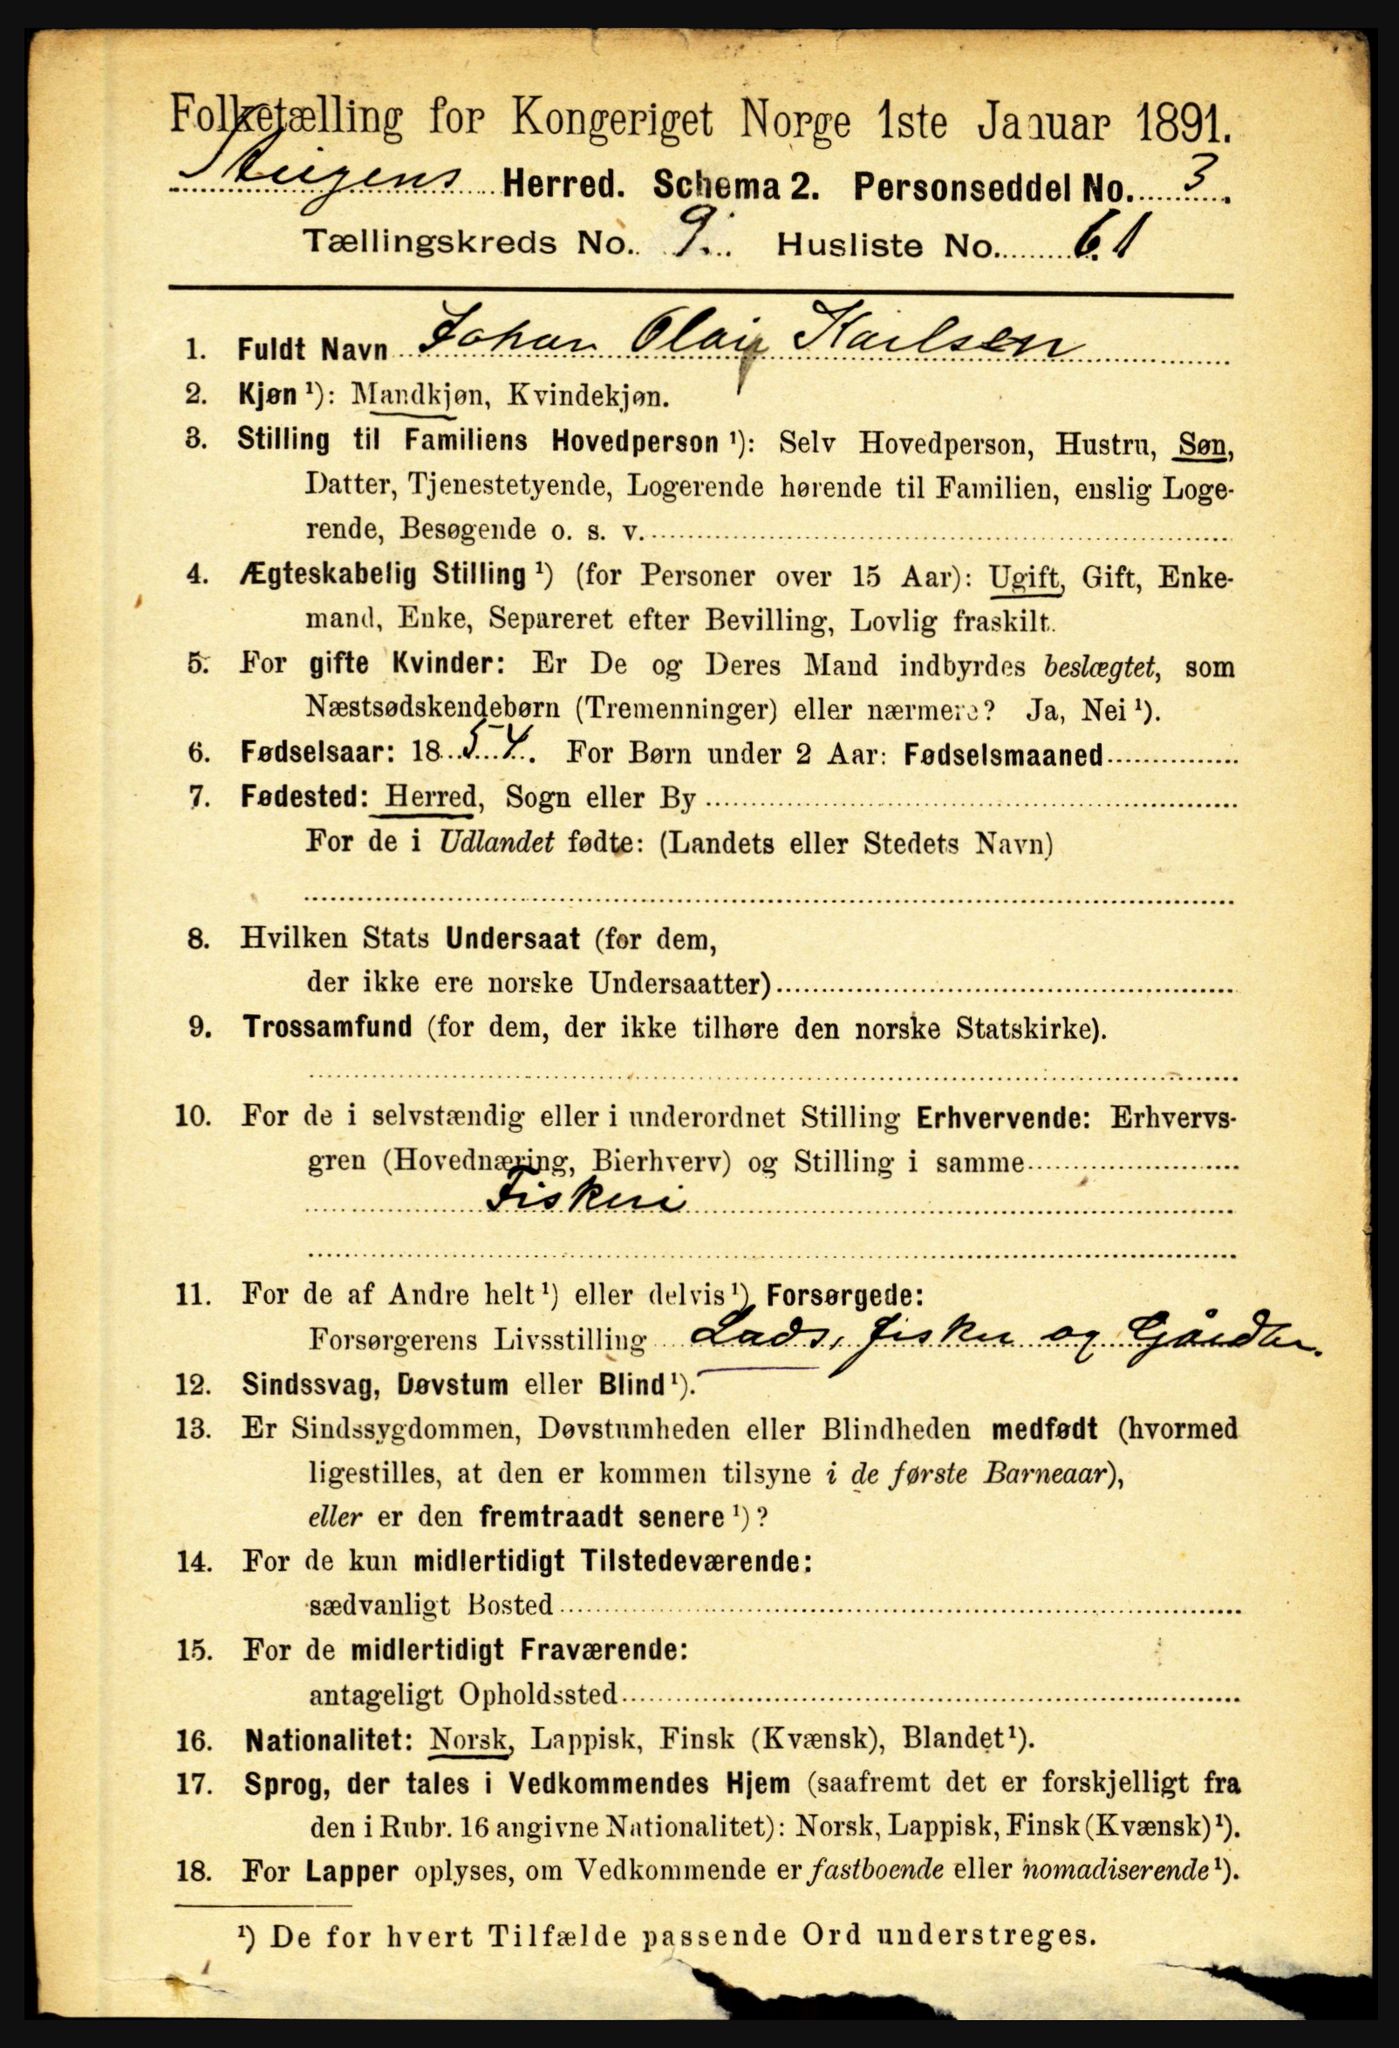 Folketælling for Kongeriget Norge 1ste Januar 1891.
Steigens Herred. Schema 2. Personseddel No. 3.
Tællingskreds No. 9. Husliste No. 61
1. Fuldt Navn Johan Olai Karlsen
2. Kjøn ¹): Mandkjøn, Kvindekjøn.
3. Stilling til Familiens Hovedperson ¹): Selv Hovedperson, Hustru, Søn,
Datter, Tjenestetyende, Logerende hørende til Familien, enslig Loge-
rende, Besøgende o. s. v.
4. Ægteskabelig Stilling ¹) (for Personer over 15 Aar): Ugift, Gift, Enke-
mand, Enke, Separeret efter Bevilling, Lovlig fraskilt.
5. For gifte Kvinder: Er De og Deres Mand indbyrdes beslægtet, som
Næstsødskendebørn (Tremenninger) eller nærmere? Ja, Nei ¹).
6. Fødselsaar: 1854. For Børn under 2 Aar: Fødselsmaaned
7. Fødested: Herred, Sogn eller By
For de i Udlandet fødte: (Landets eller Stedets Navn)
8. Hvilken Stats Undersaat (for dem,
der ikke ere norske Undersaatter)
9. Trossamfund (for dem, der ikke tilhøre den norske Statskirke).
10. For de i selvstændig eller i underordnet Stilling Erhvervende: Erhvervs-
gren (Hovednæring, Bierhverv) og Stilling i samme
Fiskeri
11. For de af Andre helt ¹) eller delvis ¹) Forsørgede:
Forsørgerens Livsstilling Lads, fisker og Gårdbr.
12. Sindssvag, Døvstum eller Blind ¹).
13. Er Sindssygdommen, Døvstumheden eller Blindheden medfødt (hvormed
ligestilles, at den er kommen tilsyne i de første Barneaar),
eller er den fremtraadt senere ¹)?
14. For de kun midlertidigt Tilstedeværende:
sædvanligt Bosted
15. For de midlertidigt Fraværende:
antageligt Opholdssted
16. Nationalitet: Norsk, Lappisk, Finsk (Kvænsk), Blandet ¹).
17. Sprog, der tales i Vedkommendes Hjem (saafremt det er forskjelligt fra
den i Rubr. 16 angivne Nationalitet): Norsk, Lappisk, Finsk (Kvænsk) ¹).
18. For Lapper oplyses, om Vedkommende er fastboende eller nomadiserende ¹).
¹) De for hvert Tilfælde passende Ord understreges.